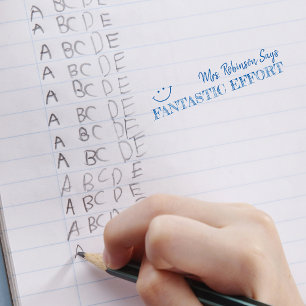 A BCDE
A BCDE
A BCDE
A BCDE
A BCDE
A BCDE
A BCDE
A BCDE
A BCDE
A BCDE
A
Mrs Robinson Says
FANTASTIC EFFORT